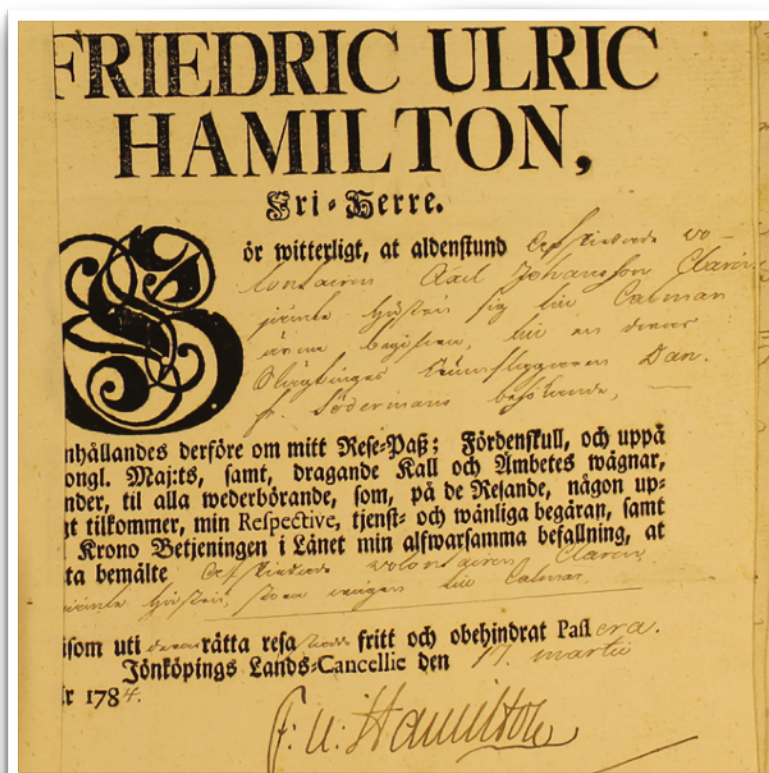 FRIEDRIC ULRIC
HAMILTON,
Fri-Herre.
Gör witterligt, at aldenstund afskiedade vo-
lontairen Axel Johansson Claren
jämte hustru sig til Calmar
ärna begifwa, til en deras
Slägtinges Dan.
Södermans besökande,
nhållandes derföre om mitt Rese-Paß; Fördenskull, och uppå
ongl. Maj:ts, samt, dragande Kall och Ämbetes wägnar,
nder, til alla wederbörande, som, på de Resande, någon up-
t tilkommer, min Respective, tjenst- och wänliga begäran, samt
Krono Betjeningen i Länet min alfwarsamma befallning, at
ta bemälte afskiedade volontairen Claren
jämte hustru, stora wägen til Calmar
isom uti deras rätta resa fritt och obehindrat Passera.
Jönköpings Lands-Cancellie den 17. martii
r 1784.
F: U: Hamilton